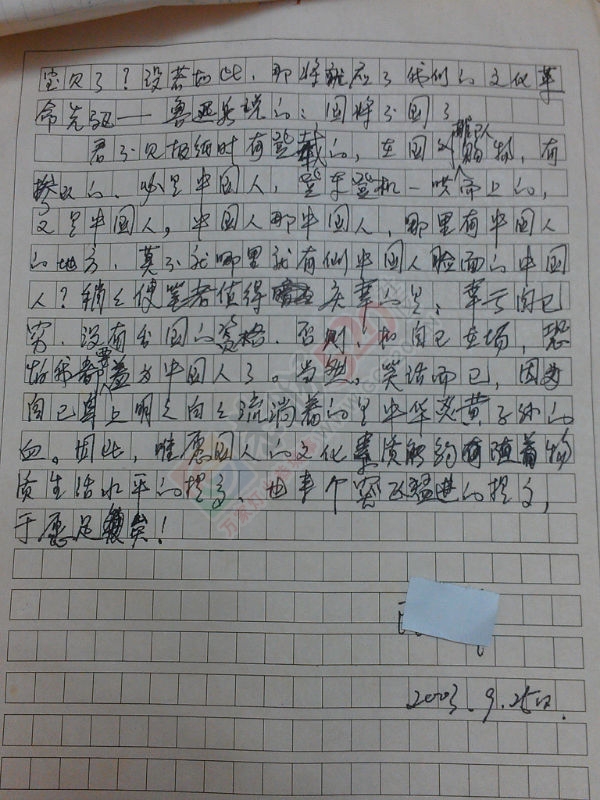 宝贝了?设若如此,那将能应了我们的文化革
命先驱——鲁迅所说的:国将不国了
君不见报纸时有登载的,在国外排队购物,有
的,必是中国人,登车登机一哄而上的,
又是中国人,中国人那中国人,哪里有中国人
的地方,莫不就哪里就有似中国人脸面的中国
人?稍之使笔者值得庆幸的是:幸亏自己
穷,没有出国的资格,否则,如自己在场,恐
怕我都要羞为中国人了。当然,笑话而已,因为
自己身上明明白白流淌着的是中华炎黄子孙的
血。因此,唯愿国人的文化素质能够随着物
质生活水平的提高,也来个突飞猛进的提高,
于愿足矣!
2003.9.25日.